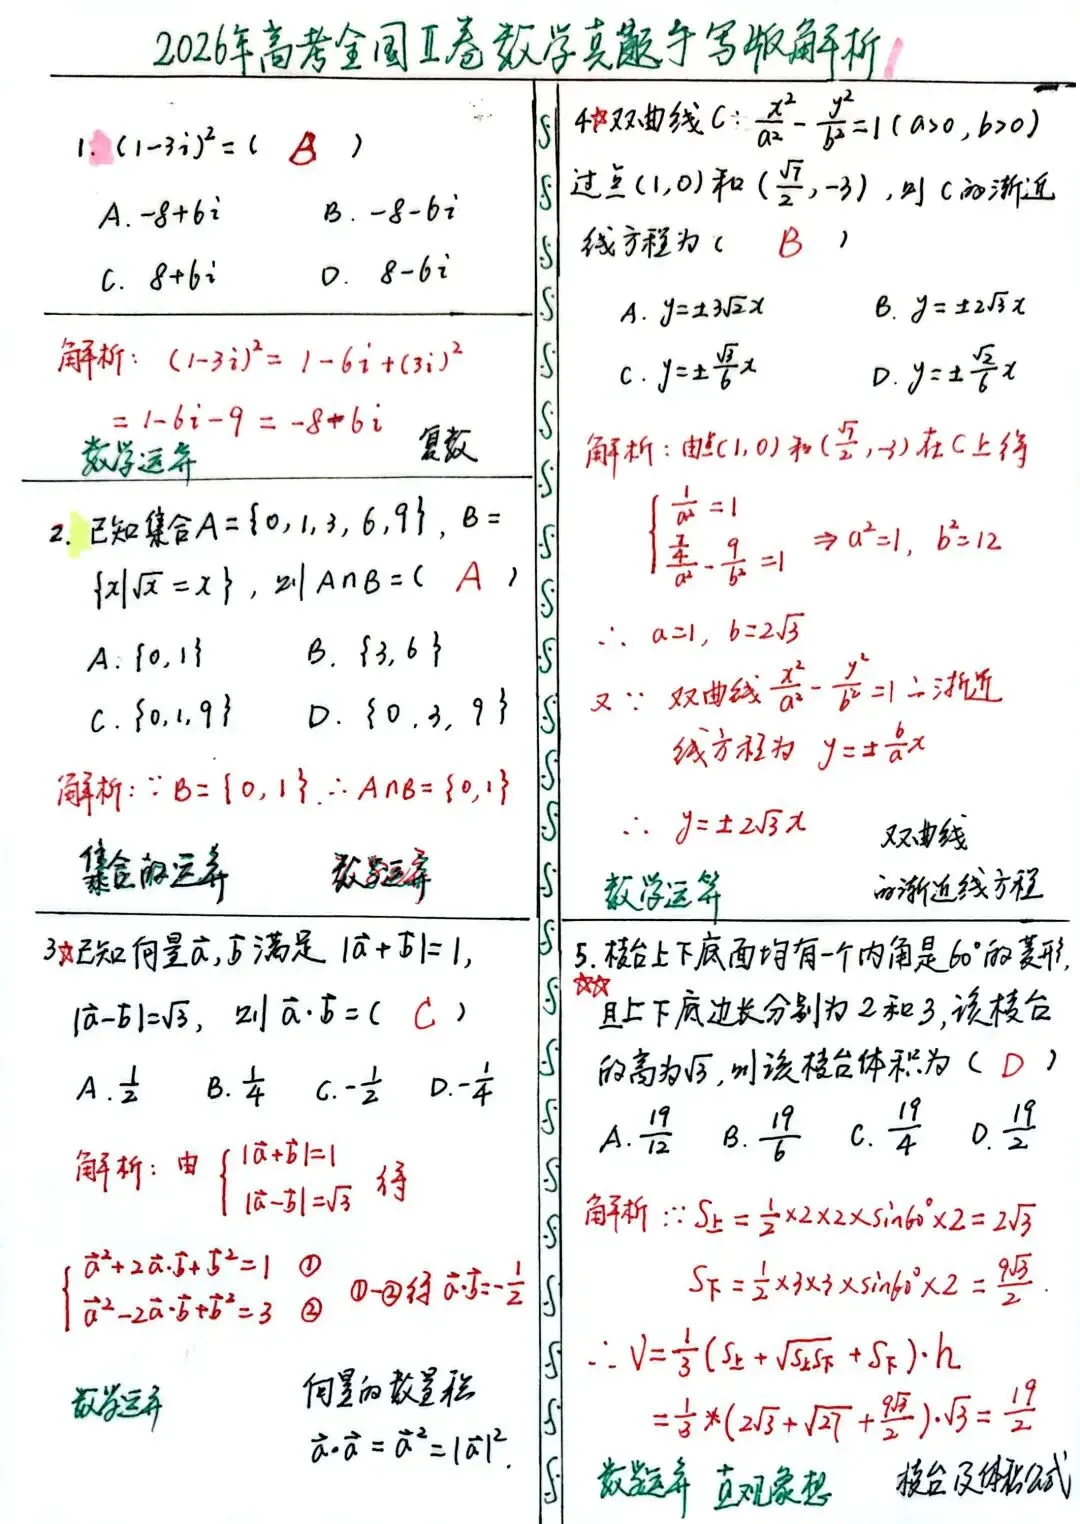 2026年高考全国Ⅱ卷数学真题手写版解析
1. (1-3i)²=( B )
A. -8+6i B. -8-6i
C. 8+6i D. 8-6i
解析: (1-3i)²= 1-6i+(3i)²
= 1-6i-9 = -8+6i
数学运算 复数
2. 已知集合A={0,1,3,6,9}, B=
{x|√x=x}, 则A∩B=( A )
A. {0,1} B. {3,6}
C. {0,1,9} D. {0,3,9}
解析: ∵B={0,1} ∴A∩B={0,1}
集合的运算 数学运算
3☆已知向量a⃗,b⃗满足 |a⃗+b⃗|=1,
|a⃗-b⃗|=√3, 则a⃗·b⃗=( C )
A. 1/2 B. 1/4 C. -1/2 D. -1/4
解析: 由 { |a⃗+b⃗|=1
|a⃗-b⃗|=√3 得
{ a⃗²+2a⃗·b⃗+b⃗²=1 ①
a⃗²-2a⃗·b⃗+b⃗²=3 ② ①-②得 a⃗·b⃗=-1/2
数学运算 向量的数量积
a⃗·a⃗=a⃗²=|a⃗|².
4☆双曲线C: x²/a²-y²/b²=1(a>0,b>0)
过点(1,0)和(√7/2,-3), 则C的渐近
线方程为( B )
A. y=±3√2x B. y=±2√3x
C. y=±√3/6x D. y=±√2/6x
解析: 由点(1,0)和(√7/2,-3)在C上得
{ 1/a²=1
7/4/a²-9/b²=1 ⇒a²=1, b²=12
∴ a=1, b=2√3
又∵ 双曲线x²/a²-y²/b²=1∴渐近
线方程为 y=±b/ax
∴ y=±2√3x
数学运算 双曲线
的渐近线方程
5. 棱台上下底面均有一个内角是60°的菱形,
☆☆且上下底边长分别为2和3,该棱台
的高为√3,则该棱台体积为( D )
A. 19/12 B. 19/6 C. 19/4 D. 19/2
解析: ∵S上=1/2×2×2×sin60°×2=2√3
S下=1/2×3×3×sin60°×2=9√3/2.
∴V=1/3(S上+√S上S下+S下)·h
=1/3*(2√3+√27+9√3/2)·√3=19/2
数学运算 直观象想 棱台及体积公式